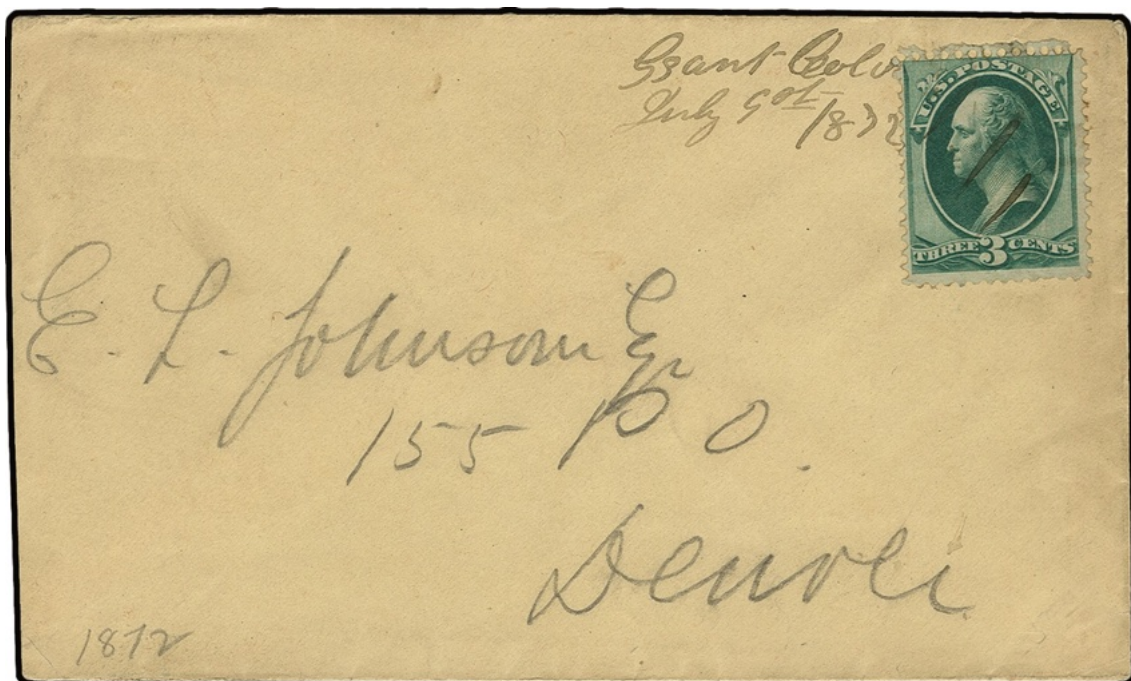 Grant Colo
July 9th 1872
U.S. POSTAGE
THREE 3 CENTS
E. L. Johnson Esq
155 P O.
Denver
1872